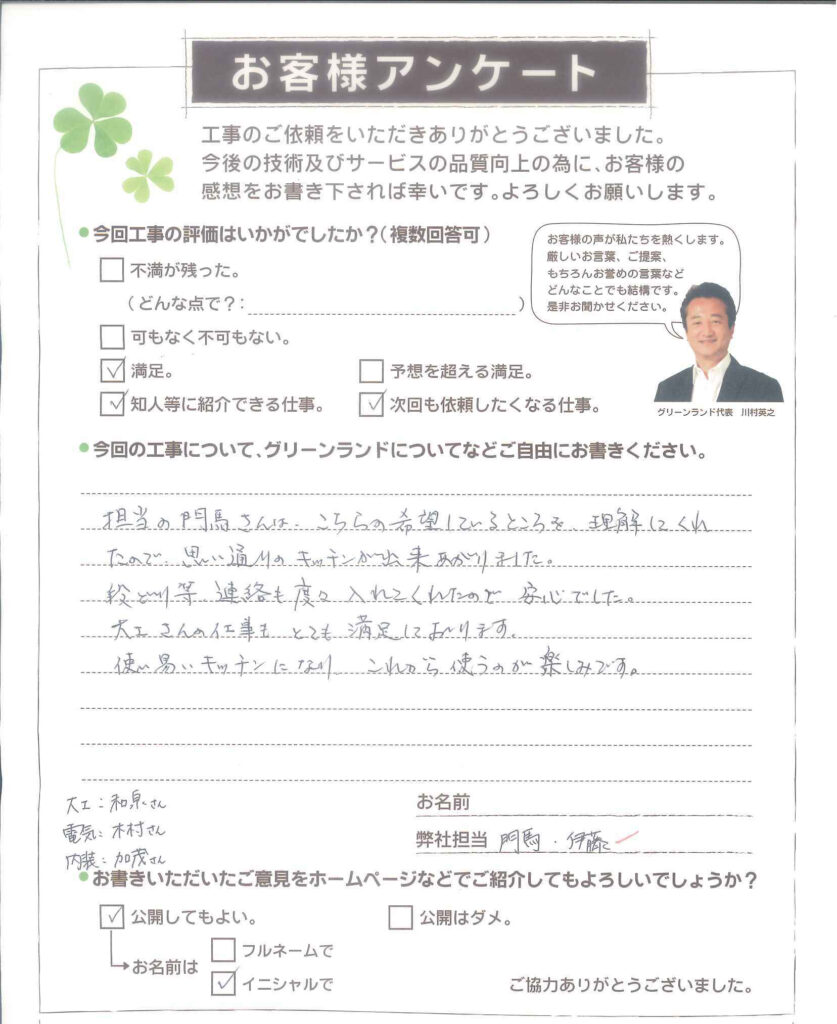 お客様アンケート
工事のご依頼をいただきありがとうございました。
今後の技術及びサービスの品質向上の為に、お客様の
感想をお書き下されば幸いです。よろしくお願いします。
今回工事の評価はいかがでしたか？（複数回答可）
不満が残った。
（どんな点で？：　　）
可もなく不可もない。
満足。
予想を超える満足。
知人等に紹介できる仕事。
次回も依頼したくなる仕事。
お客様の声が私たちを熱くします。
厳しいお言葉、ご提案、
もちろんお誉めの言葉など
どんなことでも結構です。
是非お聞かせください。
グリーンランド代表　川村英之
今回の工事について、グリーンランドについてなどご自由にお書きください。
担当の門馬さんは、こちらの希望しているところを、理解してくれ
たので、思い通りのキッチンが出来あがりました。
段どり等、連絡も度々入れてくれたので安心でした。
大工さんの仕事もとても満足しております。
使い易いキッチンになり、これから使うのが楽しみです。
大工：和泉さん
電気：木村さん
内装：加茂さん
お名前
弊社担当　門馬・伊藤
お書きいただいたご意見をホームページなどでご紹介してもよろしいでしょうか？
公開してもよい。
公開はダメ。
お名前は
フルネームで
イニシャルで
ご協力ありがとうございました。